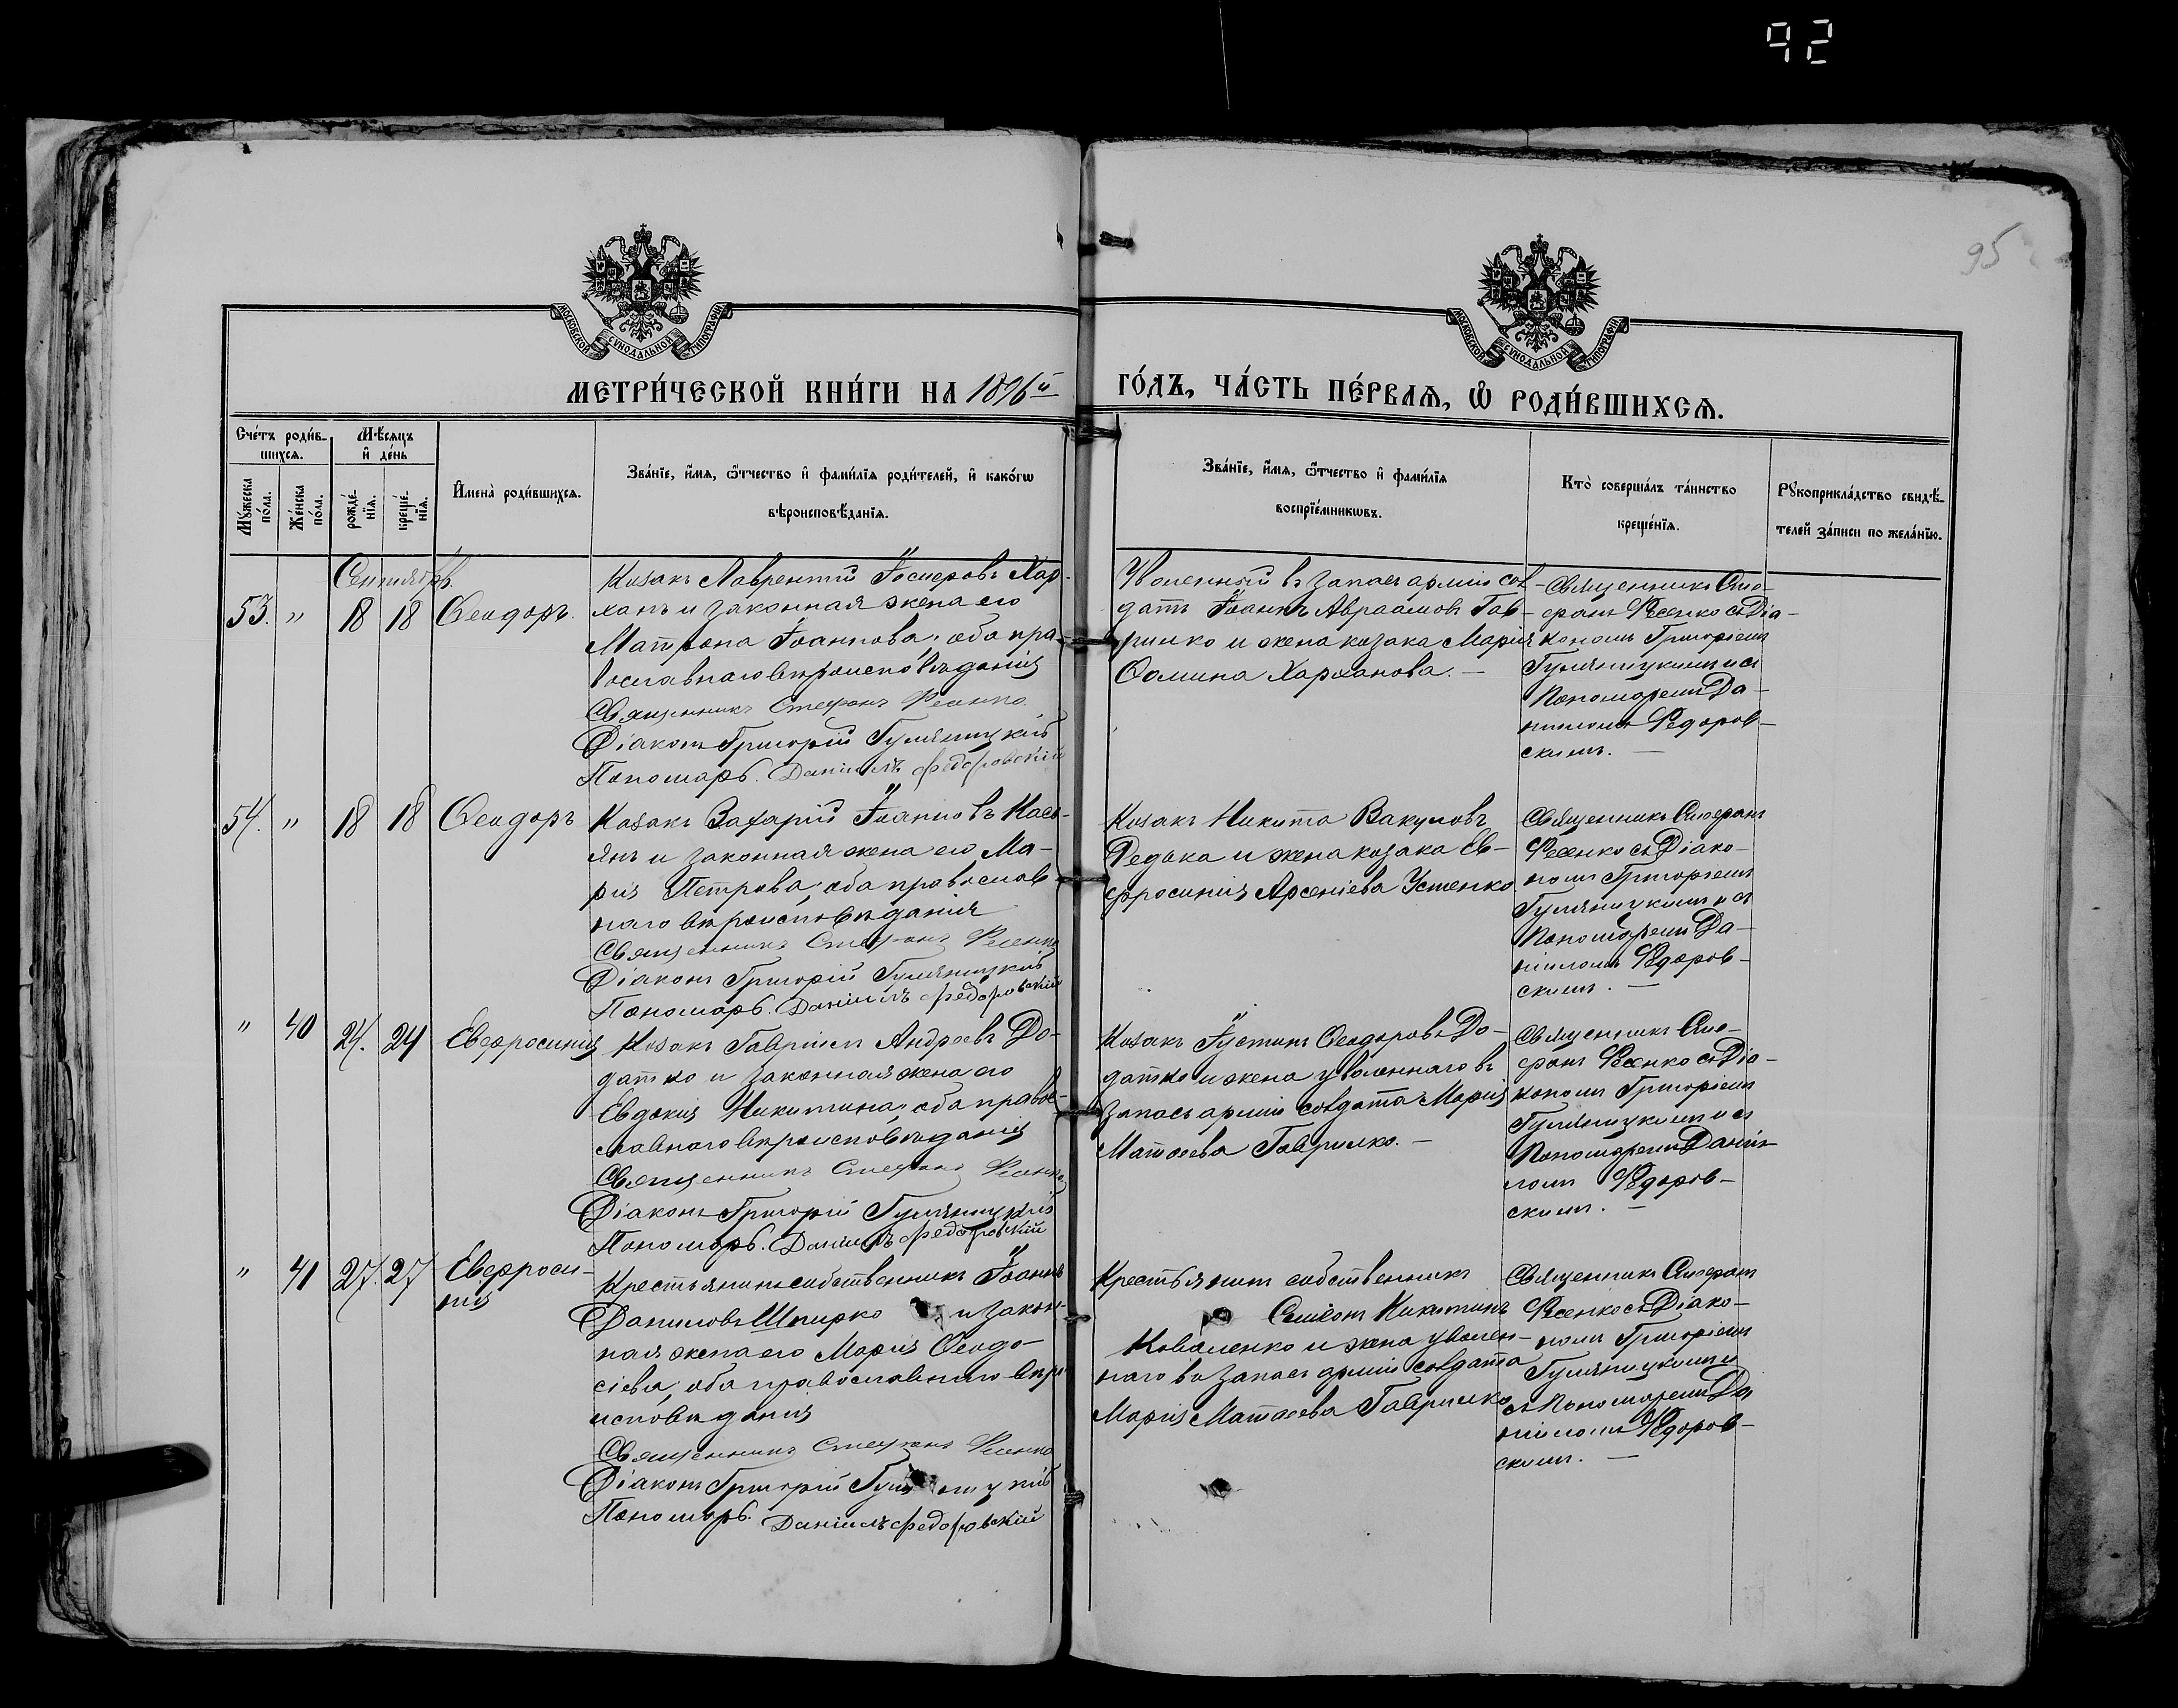 92
95
МОСКОВСКОЙ СѴНОДАЛЬНОЙ ТИПОГРАФІИ
МОСКОВСКОЙ СѴНОДАЛЬНОЙ ТИПОГРАФІИ
МЕТРИ́ЧЕСКОЙ КНИ́ГИ НА 1896й ГО́ДЪ, ЧА́СТЬ ПЕ́РВАѦ, Ѡ РОДИ́ВШИХСѦ.
Сче́тъ роди́в-
шихсѧ.
Мѣ́сѧцъ
и де́нь
Мꙋ́жеска
по́ла.
Же́нска
по́ла.
рожде́-
нїѧ.
креще́-
нїѧ.
И҆мена̀ роди́вшихсѧ.
Зва́нїе, и҆́мѧ, ѻ҆́тчество и҆ фами́лїѧ роди́телей, и҆ како́гѡ
вѣроисповѣ́данїѧ.
Зва́нїе, и҆́мѧ, ѻ҆́тчество и҆ фами́лїѧ
воспрїе́мникѡвъ.
Кто̀ соверша́лъ та́инство
креще́нїѧ.
Рꙋкоприкла́дство свидѣ́-
телей за́писи по жела́нїю.
Сентябрь
53. " 18 18 Ѳеодоръ.
Козакъ Лаврентій Іосифовъ Хар-
ханъ и законная жена его
Матрона Іоаннова, оба пра-
вославнаго вѣроисповѣданія
Священникъ Стефанъ Фесенко
Діаконъ Григорій Гуляницкій
Пономарь. Даніилъ Федоровскій
Уволенный въ запасъ арміи сол-
датъ Іоаннъ Авраамовъ Гав-
рилко и жена козака Марія
Ѳомина Харханова. —
Священникъ Сте-
фанъ Фесенко съ Діа-
кономъ Григоріемъ
Гуляницкимъ и съ
Пономаремъ Да-
ніиломъ Федоров-
скимъ. —
54. " 18 18 Ѳеодоръ
Козакъ Захарій Іоанновъ Кась-
янъ и законная жена его Ма-
рія Петрова, оба православ
наго вѣроисповѣданія
Священникъ Стефанъ Фесенко
Діаконъ Григорій Гуляницкій
Пономарь. Даніилъ Федоровскій
Козакъ Никита Вакуловъ
Редька и жена козака Ев-
фросинія Арсеніева Устенко
Священникъ Стефанъ
Фесенко съ Діако-
номъ Григоріемъ
Гуляницкимъ и съ
Пономаремъ Да-
ніиломъ Федоров-
скимъ. —
" 40 24. 24 Евфросинія
Козакъ Гавріилъ Андреевъ До-
датко и законная жена его
Евдокія Никитина, оба право-
славнаго вѣроисповѣданія
Священникъ Стефанъ Фесенко
Діаконъ Григорій Гуляницкій
Пономарь. Даніилъ Федоровскій
Козакъ Іустинъ Ѳеодоровъ До-
датко и жена уволеннаго въ
запасъ арміи солдата Марія
Матѳеева Гаврилко. —
Священникъ Сте-
фанъ Фесенко съ Діа-
кономъ Григоріемъ
Гуляницкимъ и съ
Пономаремъ Даніи-
ломъ Федоров-
скимъ. —
" 41 27. 27 Евфроси-
нія
Крестьянинъ собственникъ Іоаннъ
Даниловъ Шпирко и закон-
ная жена его Марія Ѳеодо-
сіева, оба православнаго вѣро
исповѣданія
Священникъ Стефанъ Фесенко
Діаконъ Григорій Гуляницкій
Пономарь. Даніилъ Федоровскій
Крестьянинъ собственникъ
Симеонъ Никитинъ
Коваленко и жена уволен-
наго въ запасъ арміи солдата
Марія Матѳеева Гаврилко
Священникъ Стефанъ
Фесенко съ Діако-
номъ Григоріемъ
Гуляницкимъ и
съ Пономаремъ Да
ніиломъ Федоров-
скимъ. —